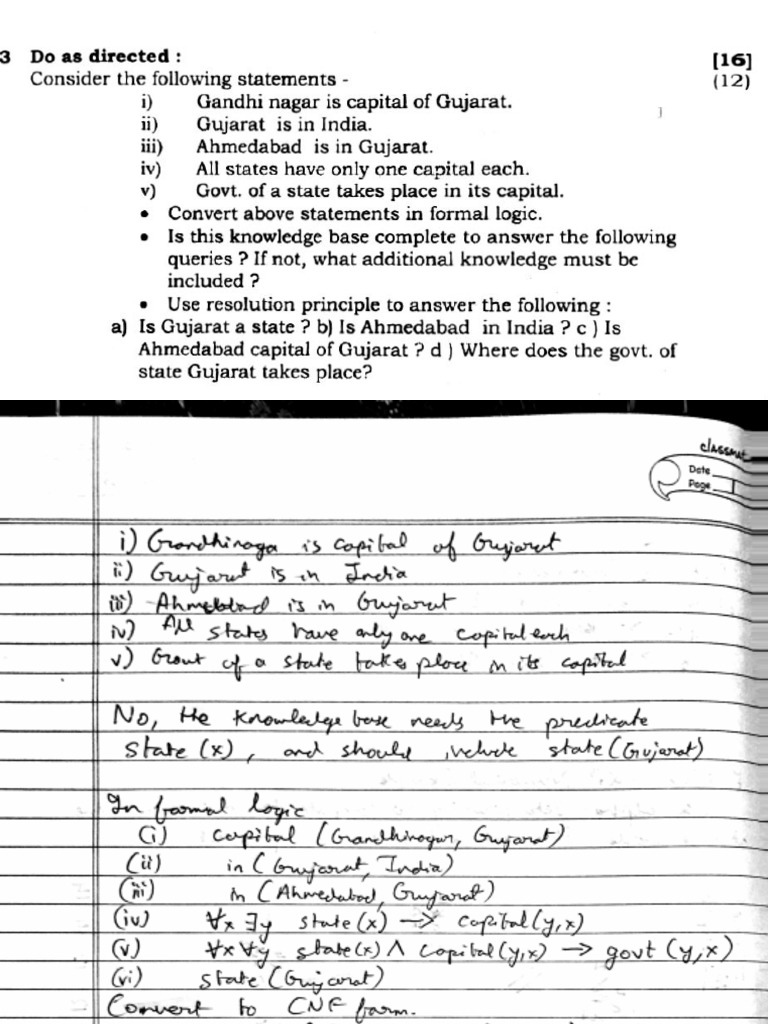 3 Do as directed : [16]
Consider the following statements - (12)
i) Gandhi nagar is capital of Gujarat.
ii) Gujarat is in India.
iii) Ahmedabad is in Gujarat.
iv) All states have only one capital each.
v) Govt. of a state takes place in its capital.
• Convert above statements in formal logic.
• Is this knowledge base complete to answer the following
queries ? If not, what additional knowledge must be
included ?
• Use resolution principle to answer the following :
a) Is Gujarat a state ? b) Is Ahmedabad in India ? c ) Is
Ahmedabad capital of Gujarat ? d ) Where does the govt. of
state Gujarat takes place?
classmate
Date
Page 1
i) Gandhinaga is capital of Gujarat
ii) Gujarat is in India
iii) Ahmedabad is in Gujarat
iv) All states have only one capital each
v) Govt of a state takes place in its capital
No, the knowledge base needs the predicate
state (x), and should include state (Gujarat)
In formal logic
(i) capital (Gandhinagar, Gujarat)
(ii) in (Gujarat, India)
(iii) in (Ahmedabad, Gujarat)
(iv) ∀x ∃y state(x) → capital(y,x)
(v) ∀x ∀y state(x) ∧ capital(y,x) → govt (y,x)
(vi) state (Gujarat)
Convert to CNF form.